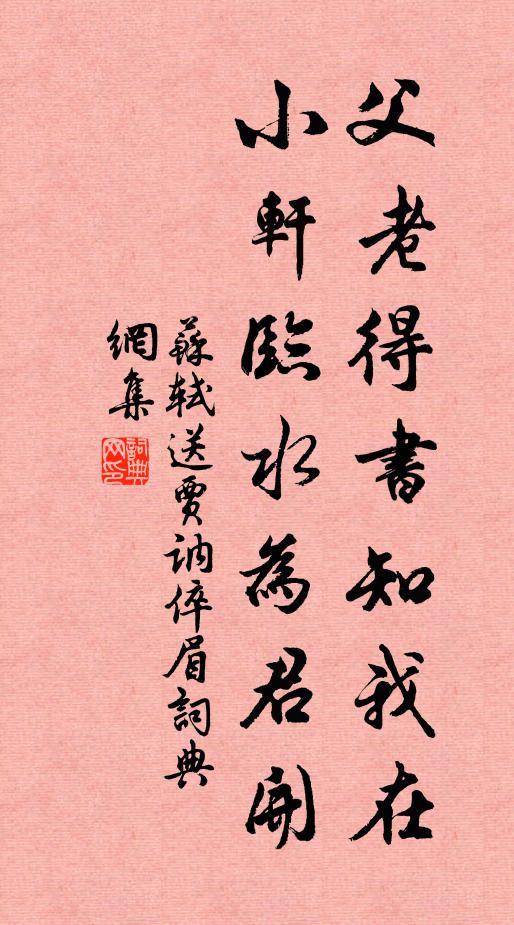 父老得書知我在
小軒臨水為君開
蘇軾送賈訥倅眉詞典
網集
詞典
网印